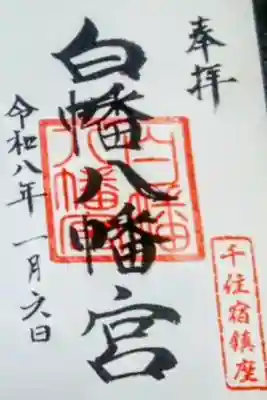 奉拝
千住宿鎮座
白幡八幡宮
白幡八幡宮
令和八年 一月六日